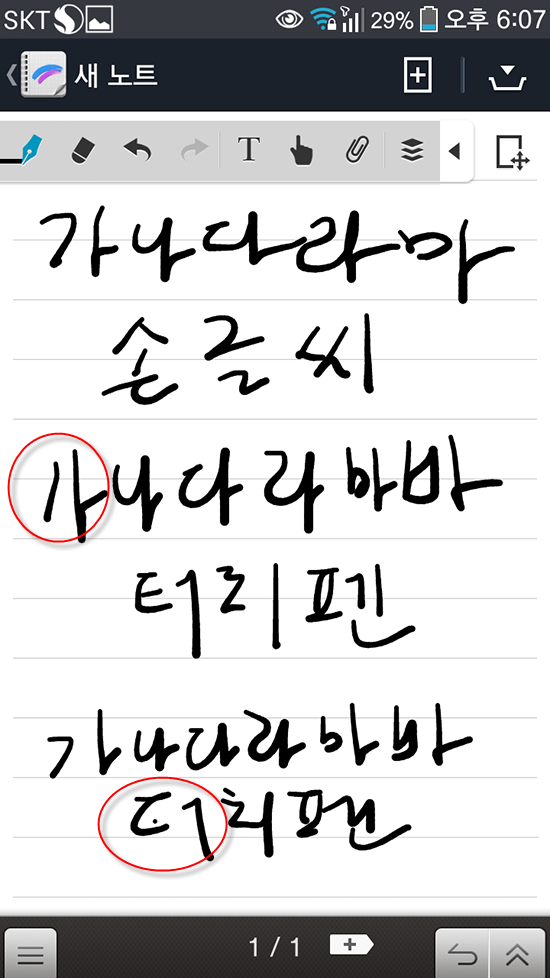 SKT 29% 오후 6:07
새 노트
T
가나다라마
손글씨
가나다라마바
터리펜
가나다라마바
터치펜
1 / 1